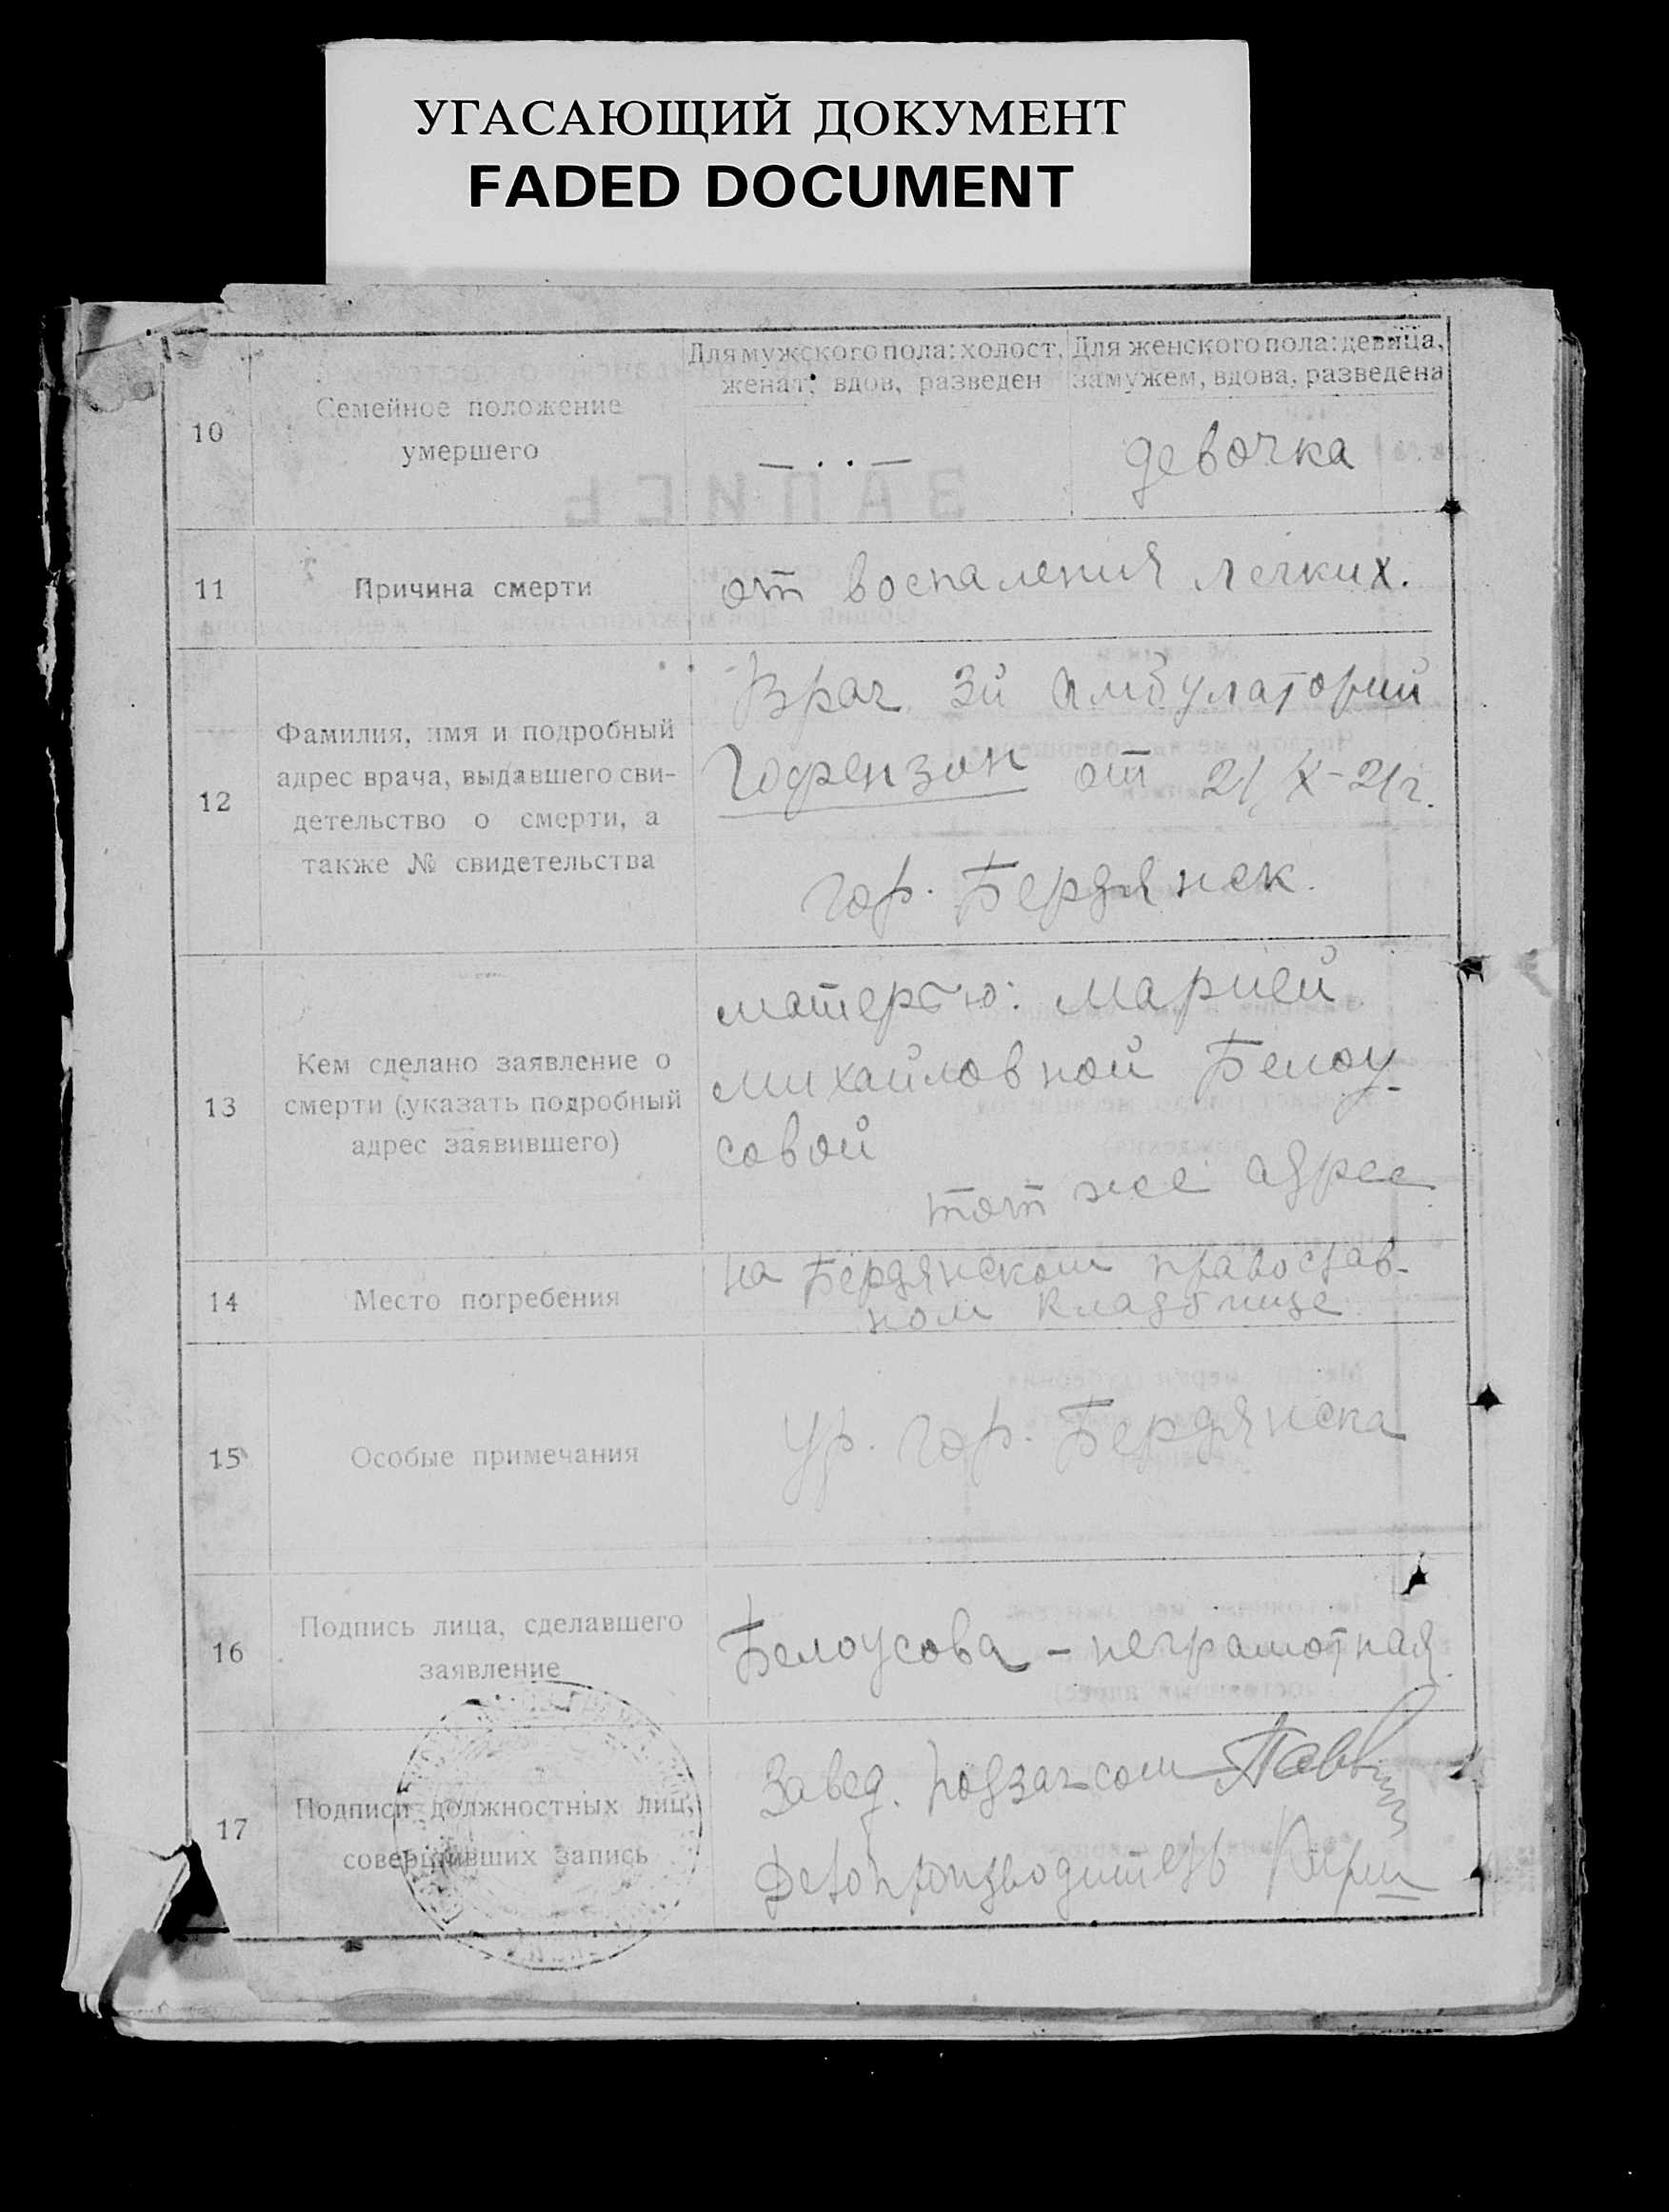 УГАСАЮЩИЙ ДОКУМЕНТ
FADED DOCUMENT
10
Семейное положение
умершего
Для мужского пола: холост,
женат, вдов, разведен
Для женского пола: девица,
замужем, вдова, разведена
— . . —
девочка
ЗАПИСЬ
11
Причина смерти
от воспаления легких.
12
Фамилия, имя и подробный
адрес врача, выдавшего сви-
детельство о смерти, а
также № свидетельства
Врач 3й Амбулаторий
Гофензон от 21/X-21г.
гор. Бердянск.
13
Кем сделано заявление о
смерти (указать подробный
адрес заявившего)
матерью: Марией
Михайловной Белоу-
совой
тот же адрес
14
Место погребения
на Бердянском православ-
ном кладбище
15
Особые примечания
Ур. гор. Бердянска
16
Подпись лица, сделавшего
заявление
Белоусова - неграмотная
17
Подписи должностных лиц,
совершивших запись
Завед. подзагсом
Делопроизводитель